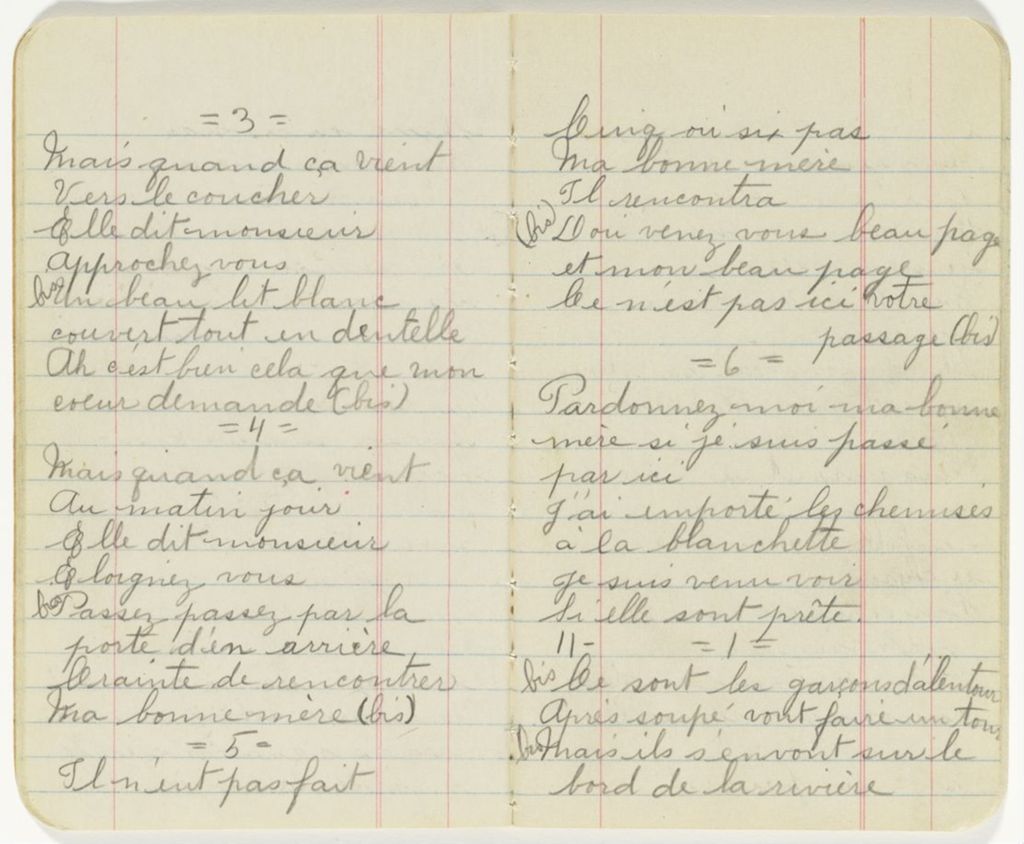 = 3 =
Mais quand ça vient
Vers le coucher
Elle dit monsieur
Approchez vous
bis Un beau lit blanc
couvert tout en dentelle
Ah c'est bien cela que mon
coeur demande (bis)
= 4 =
Mais quand ça vient
Au matin jour
Elle dit monsieur
Eloignez vous
bis Passez passez par la
porte d'en arrière
Crainte de rencontrer
Ma bonne mère (bis)
= 5 =
Il n'eut pas fait
Cinq ou six pas
Ma bonne mère
Il rencontra
(bis) D'ou venez vous beau page
et mon beau page
Ce n'est pas ici votre
passage (bis)
= 6 =
Pardonnez moi ma bonne
mère si je suis passé
par ici
J'ai emporté les chemises
à la blanchette
Je suis venu voir
Si elle sont prête.
11- = 1 =
bis Ce sont les garçons d'alentour
Après soupé vont faire un tour
bis Mais ils s'en vont sur le
bord de la rivière